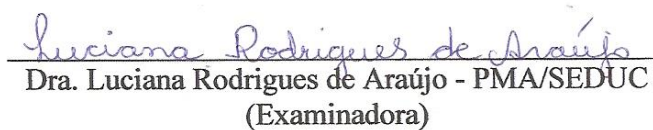 Luciana Rodrigues de Araújo
Dra. Luciana Rodrigues de Araújo - PMA/SEDUC
(Examinadora)